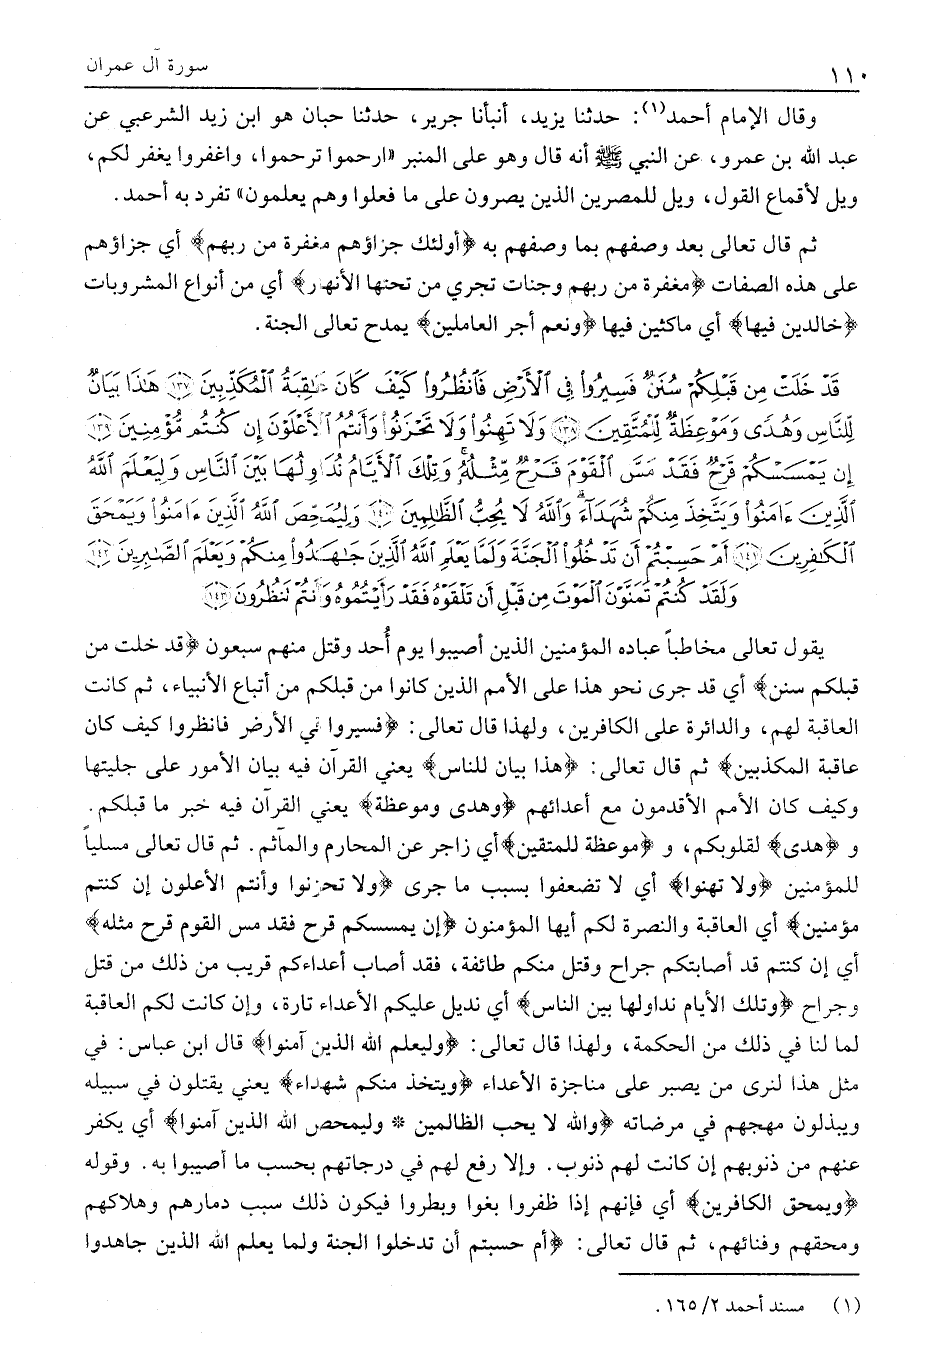 ١١٠ سورة آل عمران
وقال الإمام أحمد(١): حدثنا يزيد، أنبأنا جرير، حدثنا حبان هو ابن زيد الشرعبي عن
عبد الله بن عمرو، عن النبي ﷺ أنه قال وهو على المنبر «ارحموا ترحموا، واغفروا يغفر لكم،
ويل لأقماع القول، ويل للمصرين الذين يصرون على ما فعلوا وهم يعلمون» تفرد به أحمد.
ثم قال تعالى بعد وصفهم بما وصفهم به ﴿أولئك جزاؤهم مغفرة من ربهم﴾ أي جزاؤهم
على هذه الصفات ﴿مغفرة من ربهم وجنات تجري من تحتها الأنهار﴾ أي من أنواع المشروبات
﴿خالدين فيها﴾ أي ماكثين فيها ﴿ونعم أجر العاملين﴾ يمدح تعالى الجنة.
قَدْ خَلَتْ مِن قَبْلِكُمْ سُنَنٌ فَسِيرُوا۟ فِى ٱلْأَرْضِ فَٱنظُرُوا۟ كَيْفَ كَانَ عَـٰقِبَةُ ٱلْمُكَذِّبِينَ ﴿١٣٧﴾ هَـٰذَا بَيَانٌ
لِّلنَّاسِ وَهُدًى وَمَوْعِظَةٌ لِّلْمُتَّقِينَ ﴿١٣٨﴾ وَلَا تَهِنُوا۟ وَلَا تَحْزَنُوا۟ وَأَنتُمُ ٱلْأَعْلَوْنَ إِن كُنتُم مُّؤْمِنِينَ ﴿١٣٩﴾
إِن يَمْسَسْكُمْ قَرْحٌ فَقَدْ مَسَّ ٱلْقَوْمَ قَرْحٌ مِّثْلُهُۥ ۚ وَتِلْكَ ٱلْأَيَّامُ نُدَاوِلُهَا بَيْنَ ٱلنَّاسِ وَلِيَعْلَمَ ٱللَّهُ
ٱلَّذِينَ ءَامَنُوا۟ وَيَتَّخِذَ مِنكُمْ شُهَدَآءَ ۗ وَٱللَّهُ لَا يُحِبُّ ٱلظَّـٰلِمِينَ ﴿١٤٠﴾ وَلِيُمَحِّصَ ٱللَّهُ ٱلَّذِينَ ءَامَنُوا۟ وَيَمْحَقَ
ٱلْكَـٰفِرِينَ ﴿١٤١﴾ أَمْ حَسِبْتُمْ أَن تَدْخُلُوا۟ ٱلْجَنَّةَ وَلَمَّا يَعْلَمِ ٱللَّهُ ٱلَّذِينَ جَـٰهَدُوا۟ مِنكُمْ وَيَعْلَمَ ٱلصَّـٰبِرِينَ ﴿١٤٢﴾
وَلَقَدْ كُنتُمْ تَمَنَّوْنَ ٱلْمَوْتَ مِن قَبْلِ أَن تَلْقَوْهُ فَقَدْ رَأَيْتُمُوهُ وَأَنتُمْ تَنظُرُونَ ﴿١٤٣﴾
يقول تعالى مخاطباً عباده المؤمنين الذين أصيبوا يوم أُحد وقتل منهم سبعون ﴿قد خلت من
قبلكم سنن﴾ أي قد جرى نحو هذا على الأمم الذين كانوا من قبلكم من أتباع الأنبياء، ثم كانت
العاقبة لهم، والدائرة على الكافرين، ولهذا قال تعالى: ﴿فسيروا في الأرض فانظروا كيف كان
عاقبة المكذبين﴾ ثم قال تعالى: ﴿هذا بيان للناس﴾ يعني القرآن فيه بيان الأمور على جليتها
وكيف كان الأمم الأقدمون مع أعدائهم ﴿وهدى وموعظة﴾ يعني القرآن فيه خبر ما قبلكم.
و ﴿هدى﴾ لقلوبكم، و ﴿موعظة للمتقين﴾أي زاجر عن المحارم والمآثم. ثم قال تعالى مسلياً
للمؤمنين ﴿ولا تهنوا﴾ أي لا تضعفوا بسبب ما جرى ﴿ولا تحزنوا وأنتم الأعلون إن كنتم
مؤمنين﴾ أي العاقبة والنصرة لكم أيها المؤمنون ﴿إن يمسسكم قرح فقد مس القوم قرح مثله﴾
أي إن كنتم قد أصابتكم جراح وقتل منكم طائفة، فقد أصاب أعداءكم قريب من ذلك من قتل
وجراح ﴿وتلك الأيام نداولها بين الناس﴾ أي نديل عليكم الأعداء تارة، وإن كانت لكم العاقبة
لما لنا في ذلك من الحكمة، ولهذا قال تعالى: ﴿وليعلم الله الذين آمنوا﴾ قال ابن عباس: في
مثل هذا لنرى من يصبر على مناجزة الأعداء ﴿ويتخذ منكم شهداء﴾ يعني يقتلون في سبيله
ويبذلون مهجهم في مرضاته ﴿والله لا يحب الظالمين * وليمحص الله الذين آمنوا﴾ أي يكفر
عنهم من ذنوبهم إن كانت لهم ذنوب. وإلا رفع لهم في درجاتهم بحسب ما أصيبوا به. وقوله
﴿ويمحق الكافرين﴾ أي فإنهم إذا ظفروا بغوا وبطروا فيكون ذلك سبب دمارهم وهلاكهم
ومحقهم وفنائهم، ثم قال تعالى: ﴿أم حسبتم أن تدخلوا الجنة ولما يعلم الله الذين جاهدوا
(١) مسند أحمد ٢/ ١٦٥.